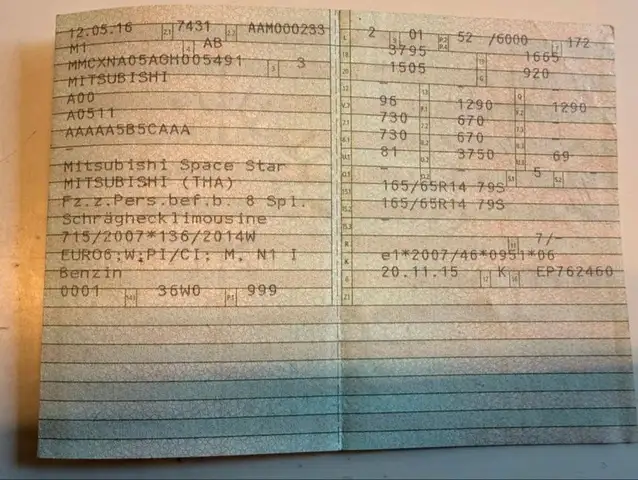 12.05.16 7431 AAM000233
M1 AB
MMCXNA05AGH005491 3
MITSUBISHI
A00
A0511
AAAAA5B5CAAA
–
Mitsubishi Space Star
MITSUBISHI (THA)
Fz.z.Pers.bef.b. 8 Spl.
Schräghecklimousine
715/2007*136/2014W
EURO6;W;PI/CI; M, N1 I
Benzin
0001 36W0 999
2 01 52 /6000 172
3795 1665
1505 920
– – –
96 1290 1290
730 670 –
730 670 –
81 3750 69
– – 5 –
165/65R14 79S
165/65R14 79S
–
7/–
e1*2007/46*0951*06
20.11.15 K EP762460